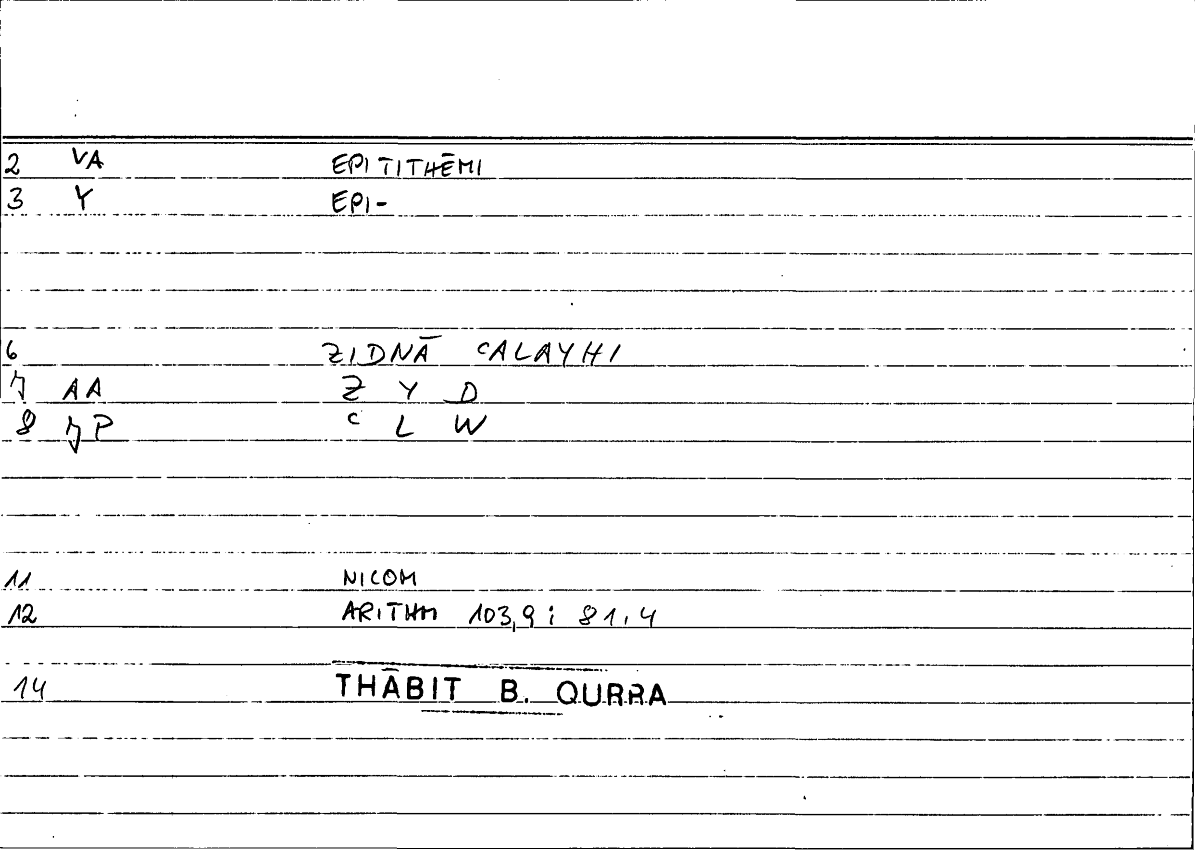 2 VA EPITITHĒMI
3 Y EPI-
6 ZIDNĀ ᶜALAYHI
7 AA Z Y D
8 7P ᶜ L W
11 NICOM
12 ARITHM 103,9 ; 81,4
14 THĀBIT B. QURRA